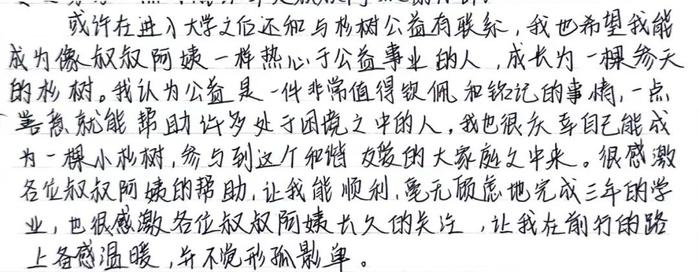 或许在进入大学之后还和与杉树公益有联系，我也希望我能
成为像叔叔阿姨一样热心于公益事业的人，成长为一棵参天
的杉树。我认为公益是一件非常值得钦佩和铭记的事情，一点
善意就能帮助许多处于困境之中的人，我也很庆幸自己能成
为一棵小杉树，参与到这个和谐友爱的大家庭之中来。很感激
各位叔叔阿姨的帮助，让我能顺利，毫无顾虑地完成三年的学
业，也很感激各位叔叔阿姨长久的关注，让我在前行的路
上备感温暖，并不觉形孤影单。